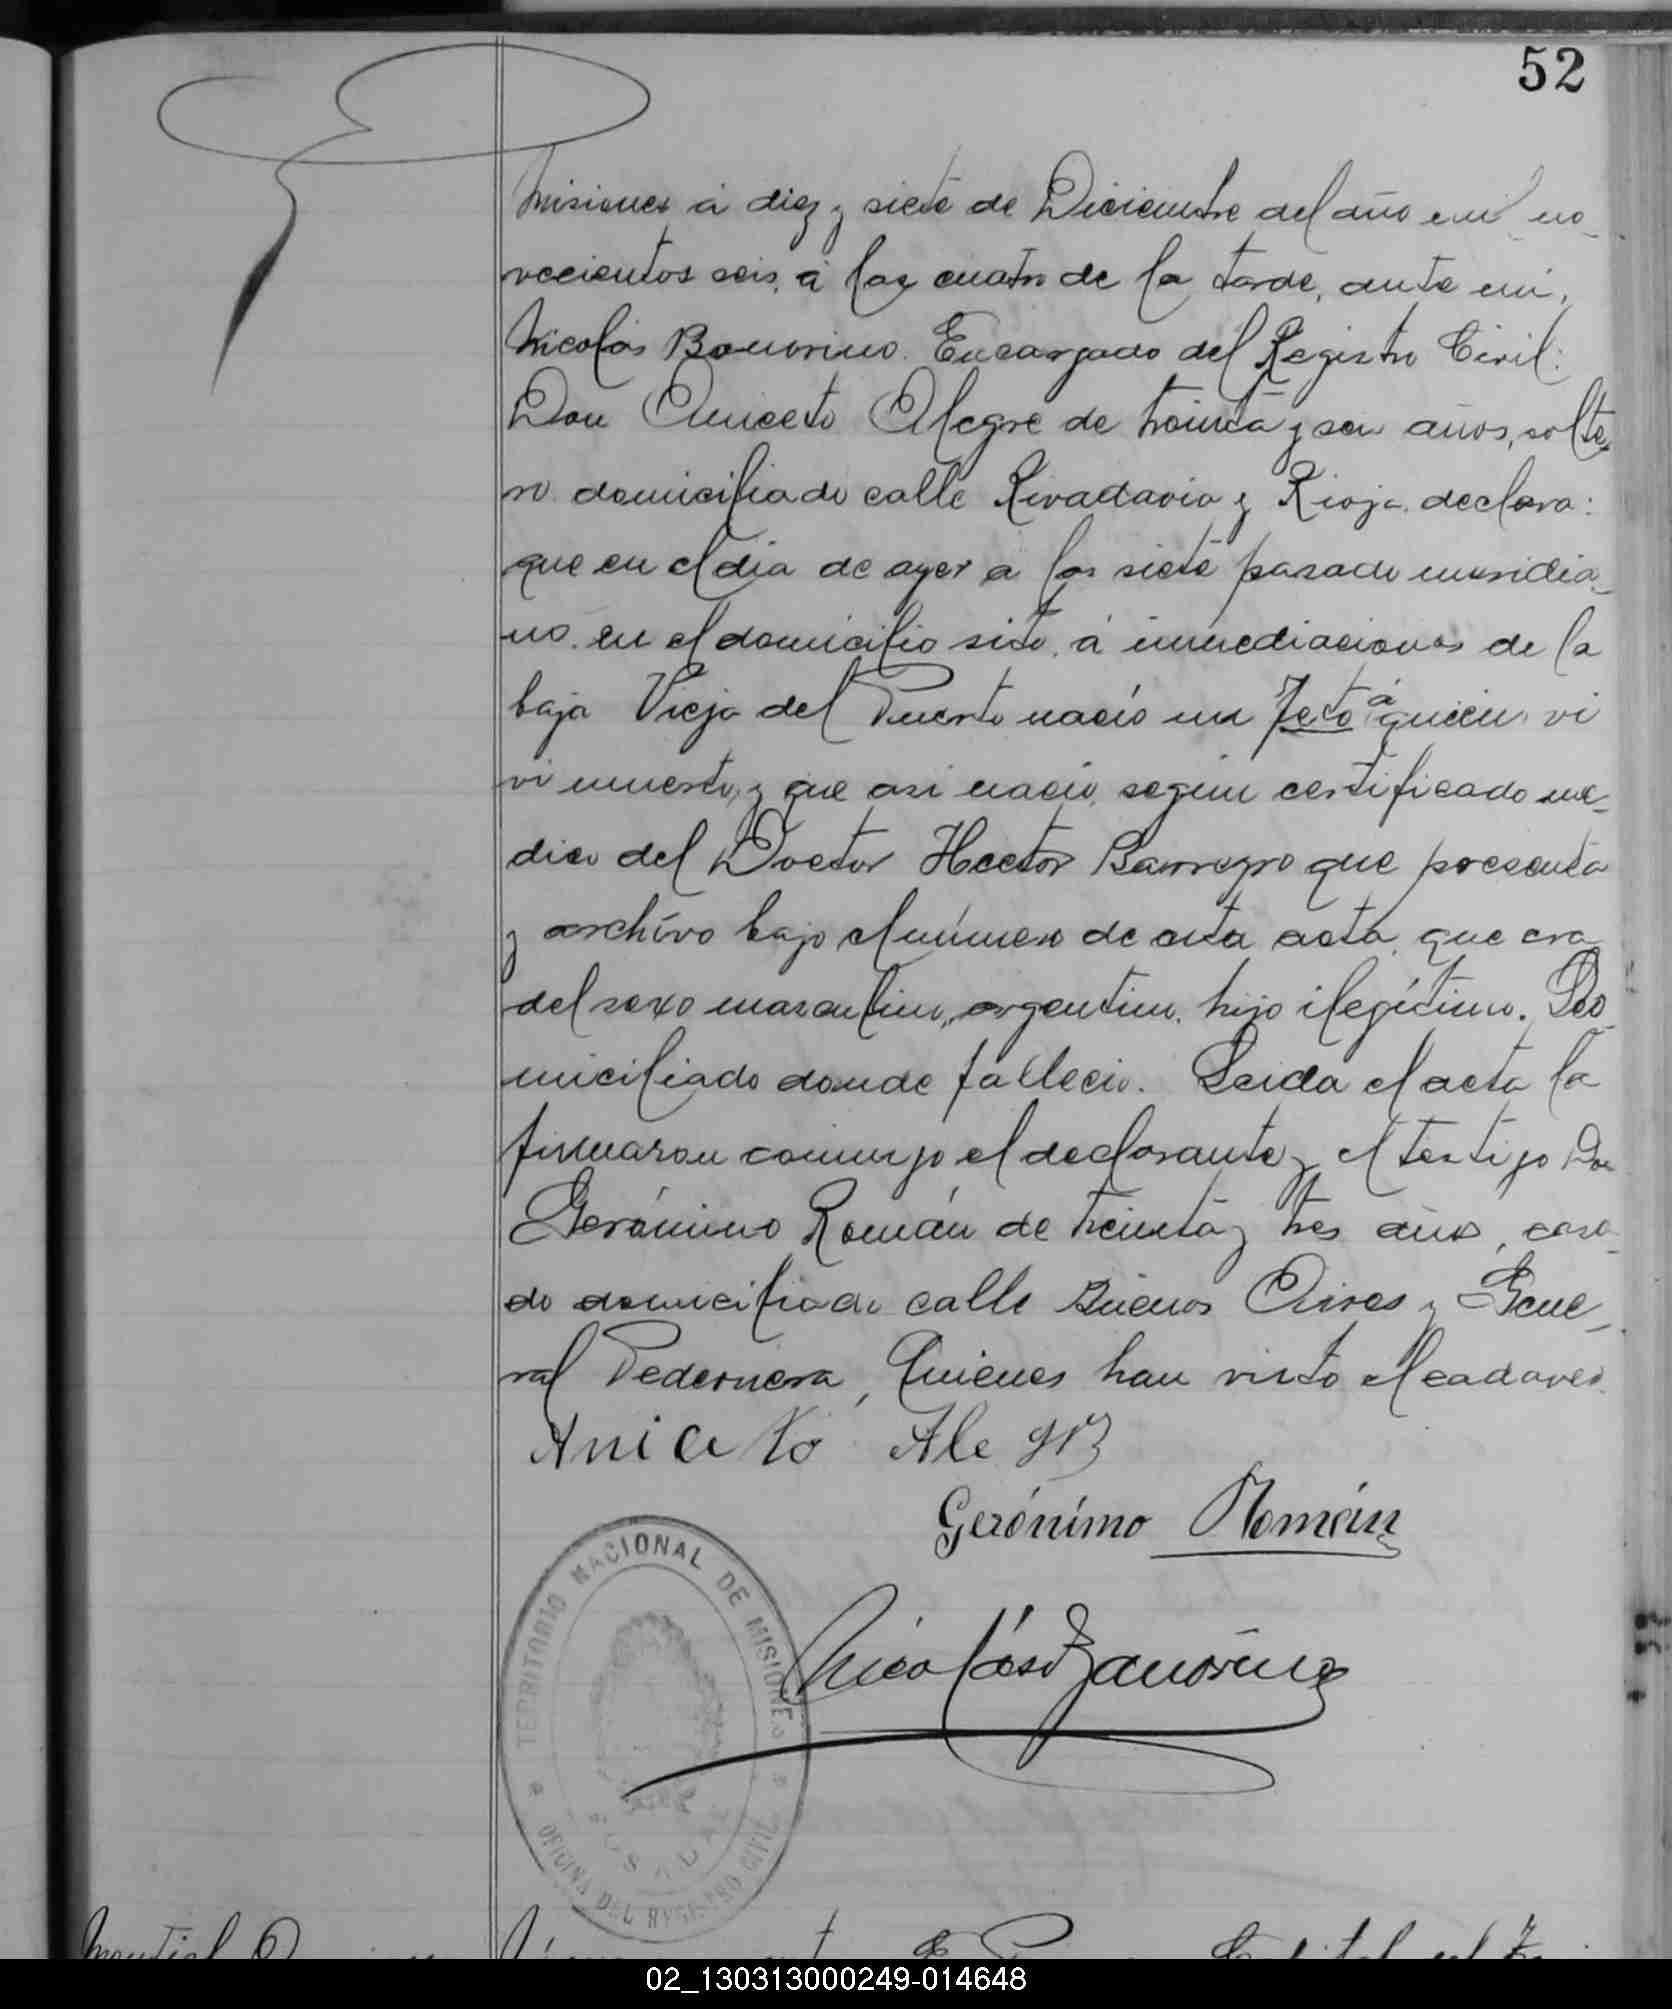 52
Misiones á diez y siete de Diciembre del año mil no-
vecientos seis, á las cuatro de la tarde, ante mi,
Nicolás Bonorino. Encargado del Registro Civil:
Don Aniceto Alegre de treinta y seis años, solte-
ro domiciliado calle Rivadavia y Rioja, declara:
que en el dia de ayer a las siete pasado meridia-
no en el domicilio sito, á inmediaciones de la
baja Vieja del Puerto nació un Feto á quien vi
vi muerto, y que asi nació, segun certificado me-
dico del Doctor Hector Barreyro que presenta
y archivo bajo el número de esta acta, que era
del sexo masculino, argentino, hijo ilegítimo. Do
miciliado donde falleció. Leida el acta la
firmaron conmigo el declarante y el testigo Don
Gerónimo Román de treinta y tres años, casa-
do domiciliado calle Buenos Aires y Gene-
ral Pedernera, Quienes han visto el cadaver.
Aniceto Alegre
Gerónimo Román
Nicolás Bonorino
TERRITORIO NACIONAL DE MISIONES
POSADAS
OFICINA DEL REGISTRO CIVIL
02_130313000249-014648